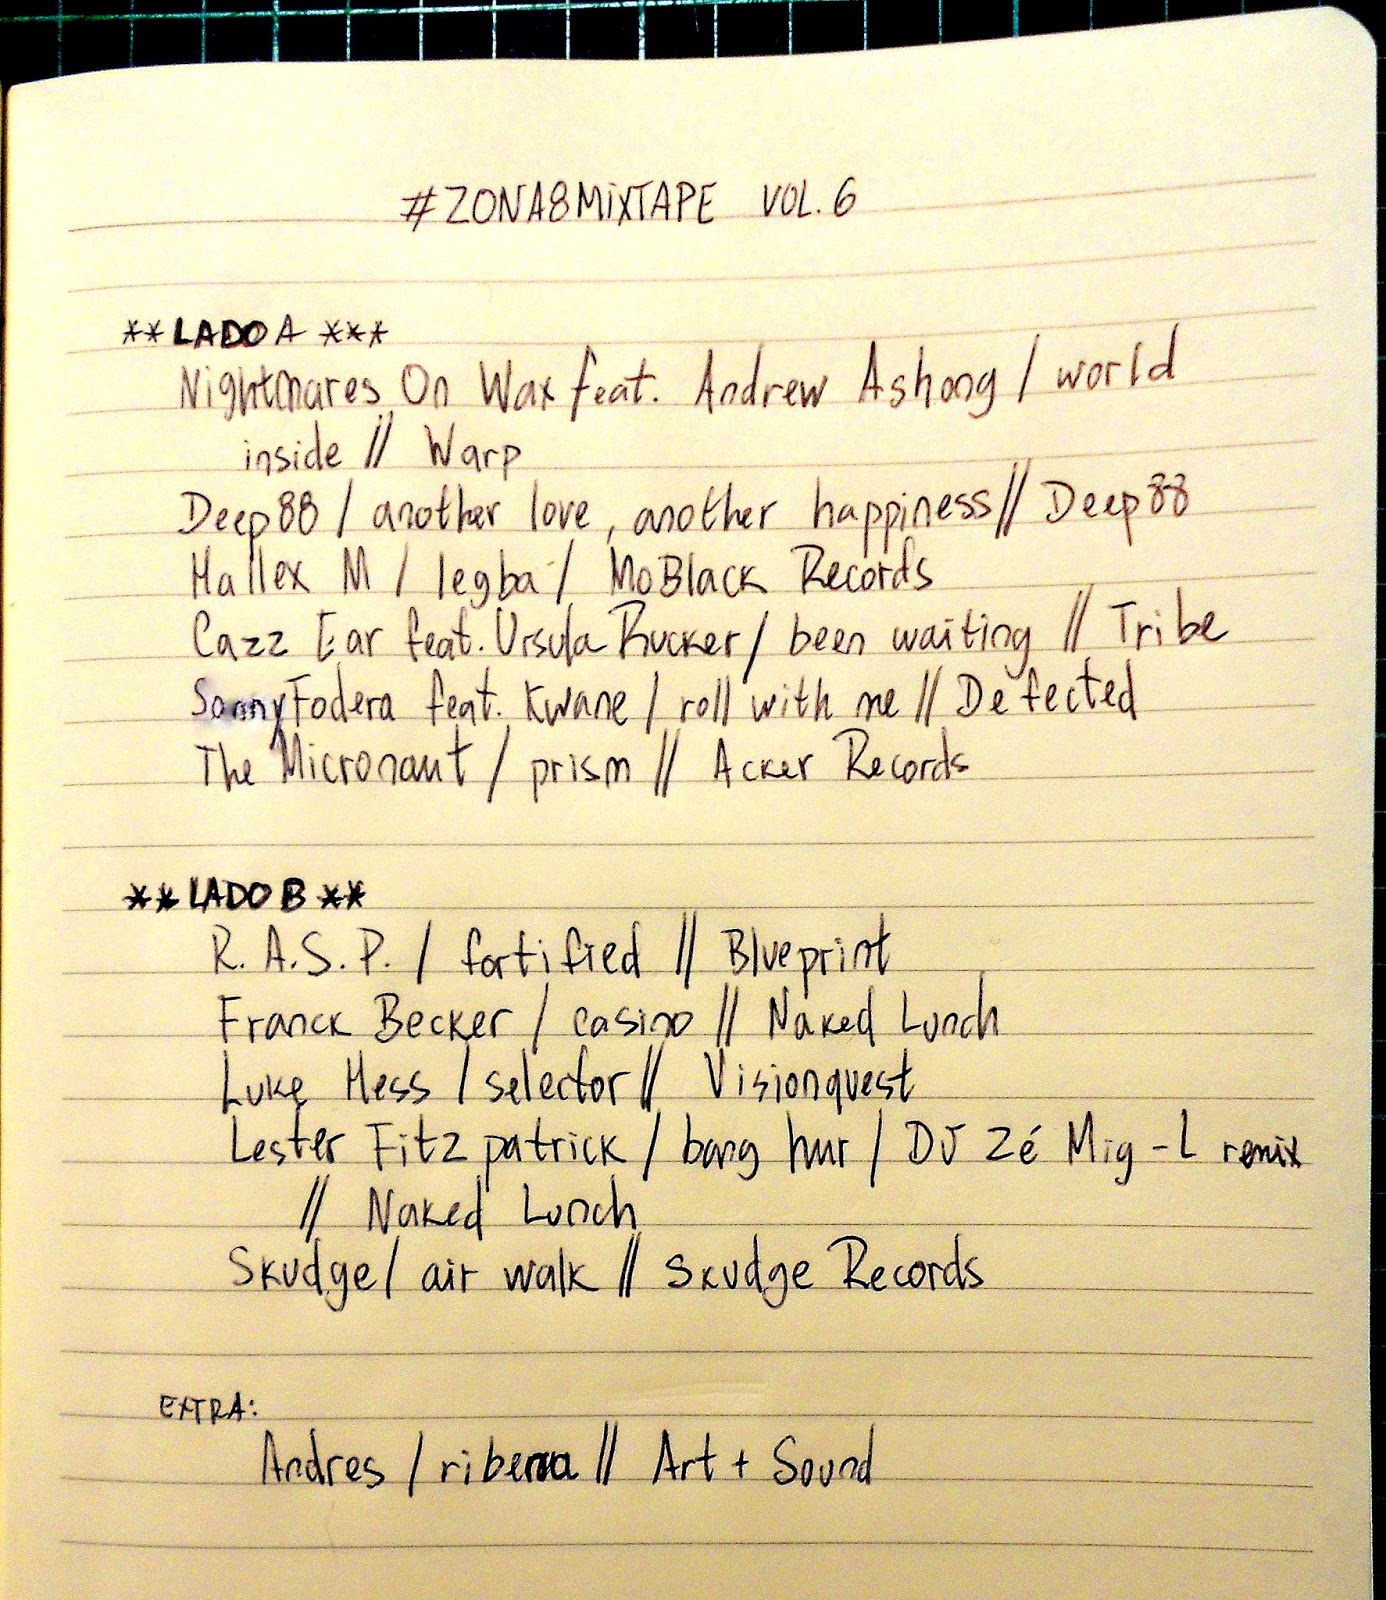 #ZONA8MiXTAPE VOL.6
** LADO A ***
Nightmares On Wax feat. Andrew Ashong / world
inside // Warp
Deep88 / another love, another happiness // Deep88
Hallex M / legba / MoBlack Records
Cazz Ear feat. Ursula Rucker / been waiting // Tribe
Sonny Fodera feat. Kwane / roll with me // Defected
The Micronaut / prism // Acker Records
** LADO B **
R.A.S.P. / fortified // Blueprint
Franck Becker / casino // Naked Lunch
Luke Hess / selector // Visionquest
Lester Fitzpatrick / bang hur / DJ Zé Mig-L remix
// Naked Lunch
Skudge / air walk // Skudge Records
EXTRA:
Andres / ribera // Art + Sound